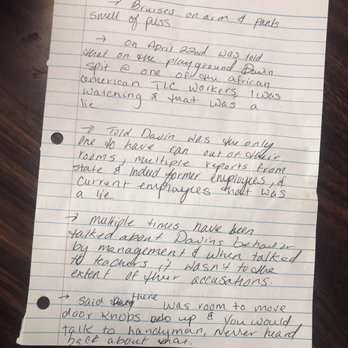 → Bruises on arm & pants
smell of piss
→ on April 22nd was told
that on the playground Davin
spit @ one of the african
american TLC workers, I was
watching & that was a
lie
→ Told Davin was the only
one to have ran out of their
rooms, multiple reports from
state & Indeed former employees, &
current employees that was
a lie
→ multiple times have been
talked about Davins behavior
by management & when talked
to teachers it wasn't to the
extent of their accusations.
→ Said there was room to move
door knobs up & you would
talk to handyman, Never heard
back about that.